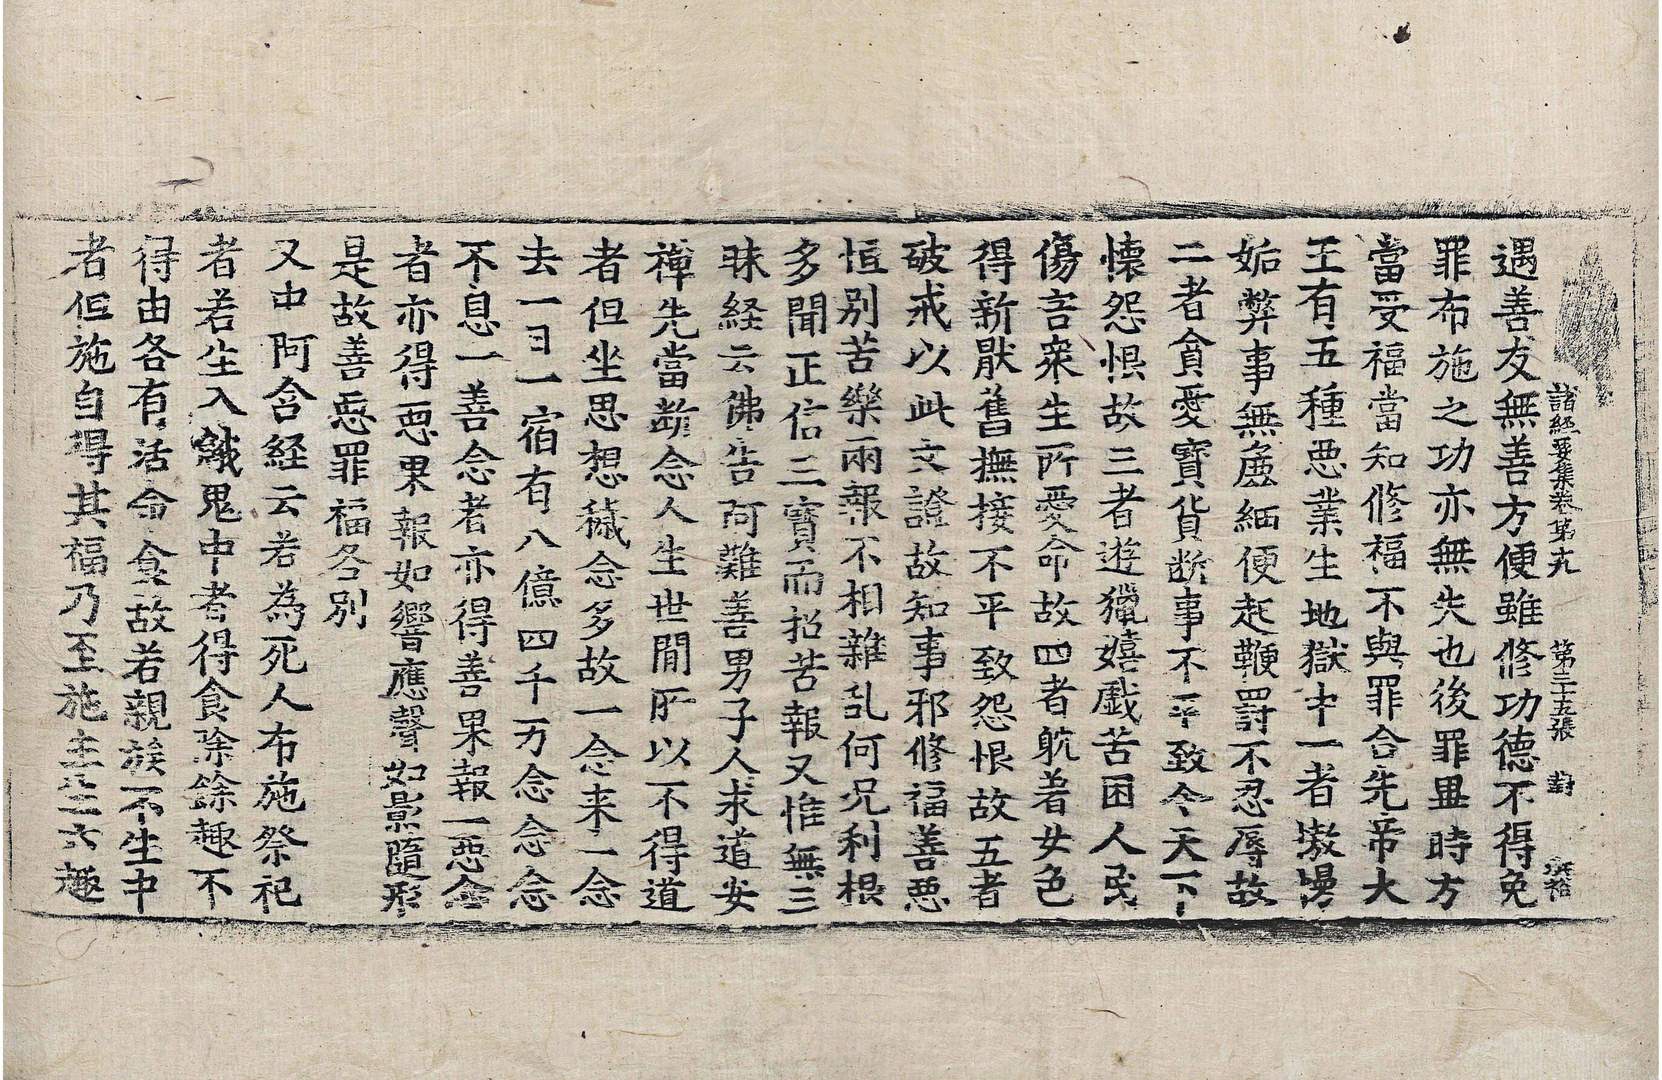 諸経要集卷第九 第三十五張 對
遇善友無善方便雖修功德不得免
罪布施之功亦無失也後罪畢時方
當受福當知修福不與罪合先帝大
王有五種惡業生地獄中一者憞慢
妬弊事無麁細便起鞭罰不忍辱故
二者貪愛寶貨斷事不平致令天下
懐怨恨故三者遊獵嬉戲苦困人民
傷害衆生所愛命故四者躭著女色
得新猒舊撫接不平致怨恨故五者
破戒以此文證故知事邪修福善惡
恒別苦樂兩報不相雜乱何况利根
多聞正信三寶而招苦報又惟無三
昧経云佛告阿難善男子人求道安
禪先當断念人生世間所以不得道
者但坐思想穢念多故一念来一念
去一日一宿有八億四千万念念念
不息一善念者亦得善果報一惡念
者亦得惡果報如響應聲如影隨形
是故善惡罪福各別
又中阿含経云若為死人布施祭祀
者若生入餓鬼中者得食除餘趣不
得由各有活命食故若親族不生中
者但施自得其福乃至施主生六趣